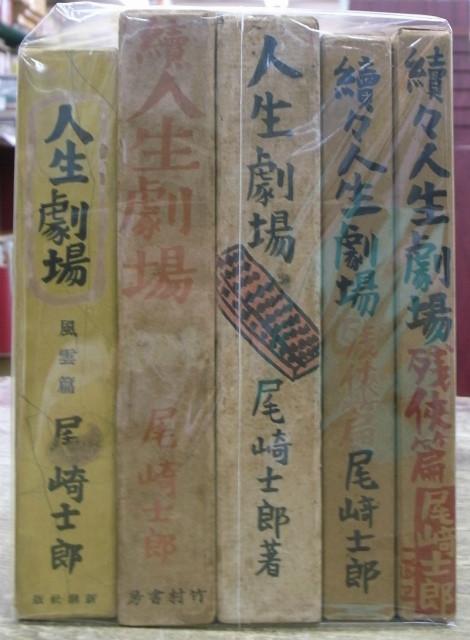 人生劇場
風雲篇
尾崎士郎
新潮社版
續人生劇場
尾崎士郎
竹村書房
人生劇場
尾崎士郎著
續々人生劇場
残侠篇
尾崎士郎
續々人生劇場
残侠篇
尾崎士郎